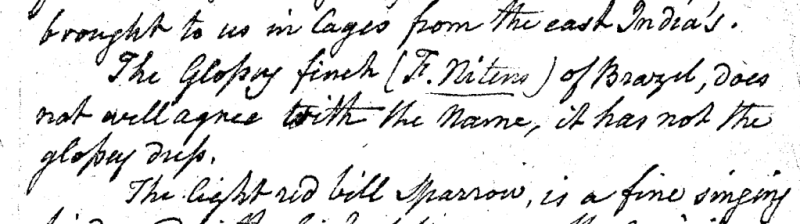 brought to us in Cages from the east India's.
The Glossy finch (F. Nitens) of Brazel, does
not well agree with the Name, it has not the
glossey dress.
The light red bill sparrow, is a fine singing